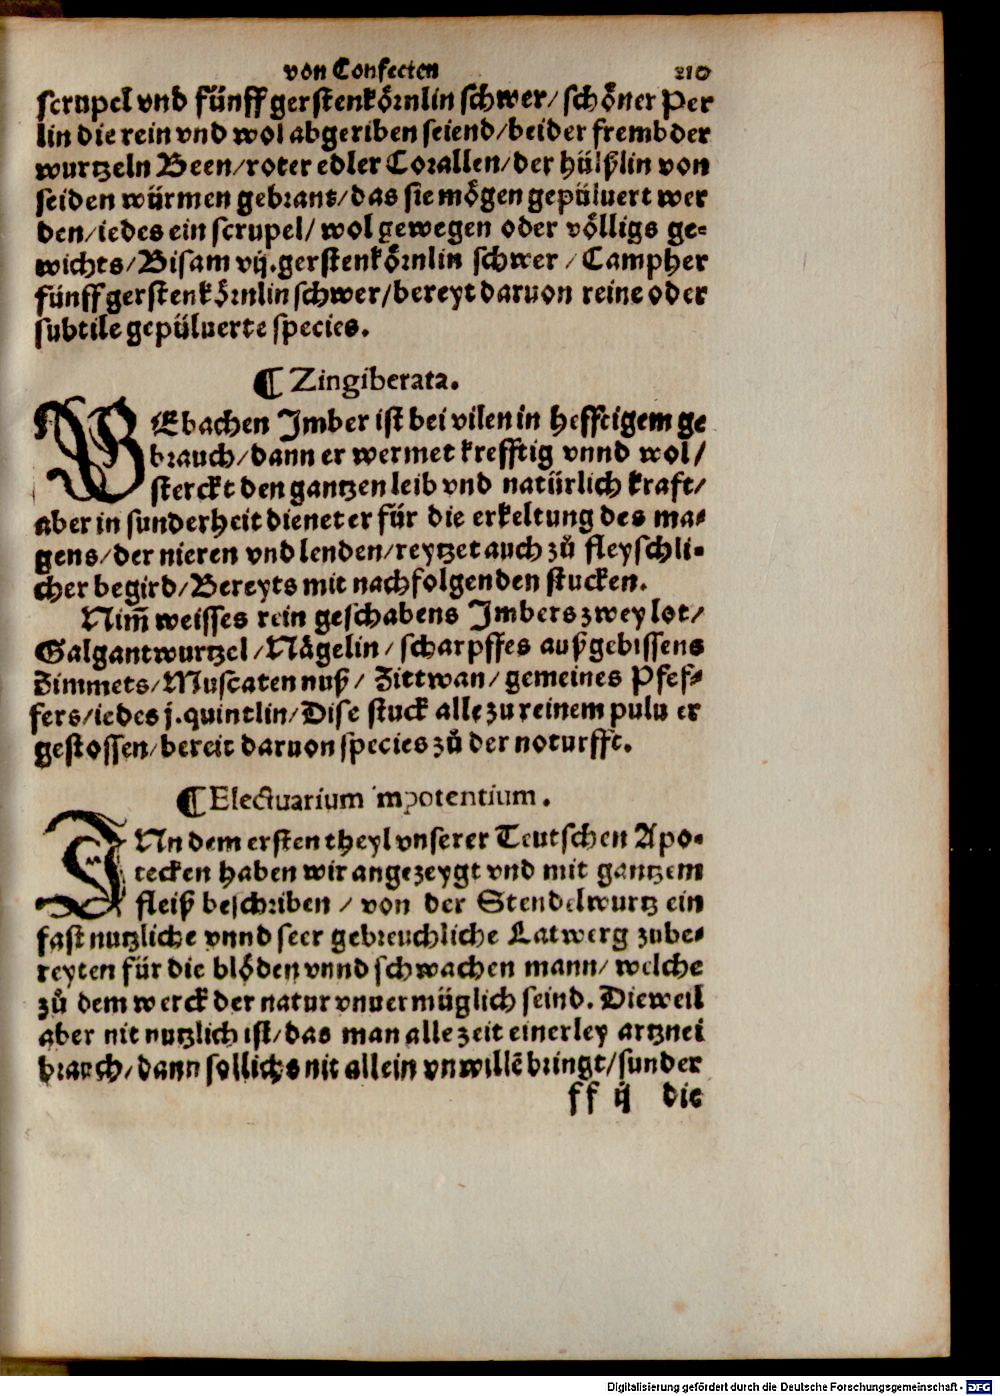 von Confecten 210
scrupel vnd fünff gerstenkörnlin schwer/ schöner Per
lin die rein vnd wol abgeriben seiend/ beider frembder
wurtzeln Been/ roter edler Corallen/ der hülßlin von
seiden würmen gebrant/ das sie mögen gepüluert wer
den/ iedes ein scrupel/ wol gewegen oder völligs ge⸗
wichts/ Bisam vij. gerstenkörnlin schwer / Campher
fünff gerstenkörnlin schwer/ bereyt daruon reine oder
subtile gepüluerte species.
¶ Zingiberata.
GEbachen Imber ist bei vilen in hefftigem ge
brauch/ dann er wermet krefftig vnnd wol/
sterckt den gantzen leib vnd natürlich kraft/
aber in sunderheit dienet er für die erkeltung des ma⸗
gens/ der nieren vnd lenden/ reytzet auch zů fleyschli⸗
cher begird/ Bereyts mit nachfolgenden stucken.
Nim̃ weisses rein geschabens Imbers zwey lot/
Galgantwurtzel/ Nägelin/ scharpffes außgebissens
Zimmets/ Muscaten nuß/ Zittwan/ gemeines Pfef⸗
fers/ iedes j. quintlin/ Dise stuck alle zu reinem pulu er
gestossen/ bereit daruon species zů der noturfft.
¶ Electuarium impotentium.
INn dem ersten theyl vnserer Teutschen Apo⸗
tecken haben wir angezeygt vnd mit gantzem
fleiß beschriben / von der Stendelwurtz ein
fast nutzliche vnnd seer gebreuchliche Latwerg zube⸗
reyten für die blöden vnnd schwachen mann/ welche
zů dem werck der natur vnuermüglich seind. Dieweil
aber nit nutzlich ist/ das man alle zeit einerley artznei
brauch/ dann sollichs nit allein vnwillẽ bringt/ sunder
ff ij die
Digitalisierung gefördert durch die Deutsche Forschungsgemeinschaft - DFG